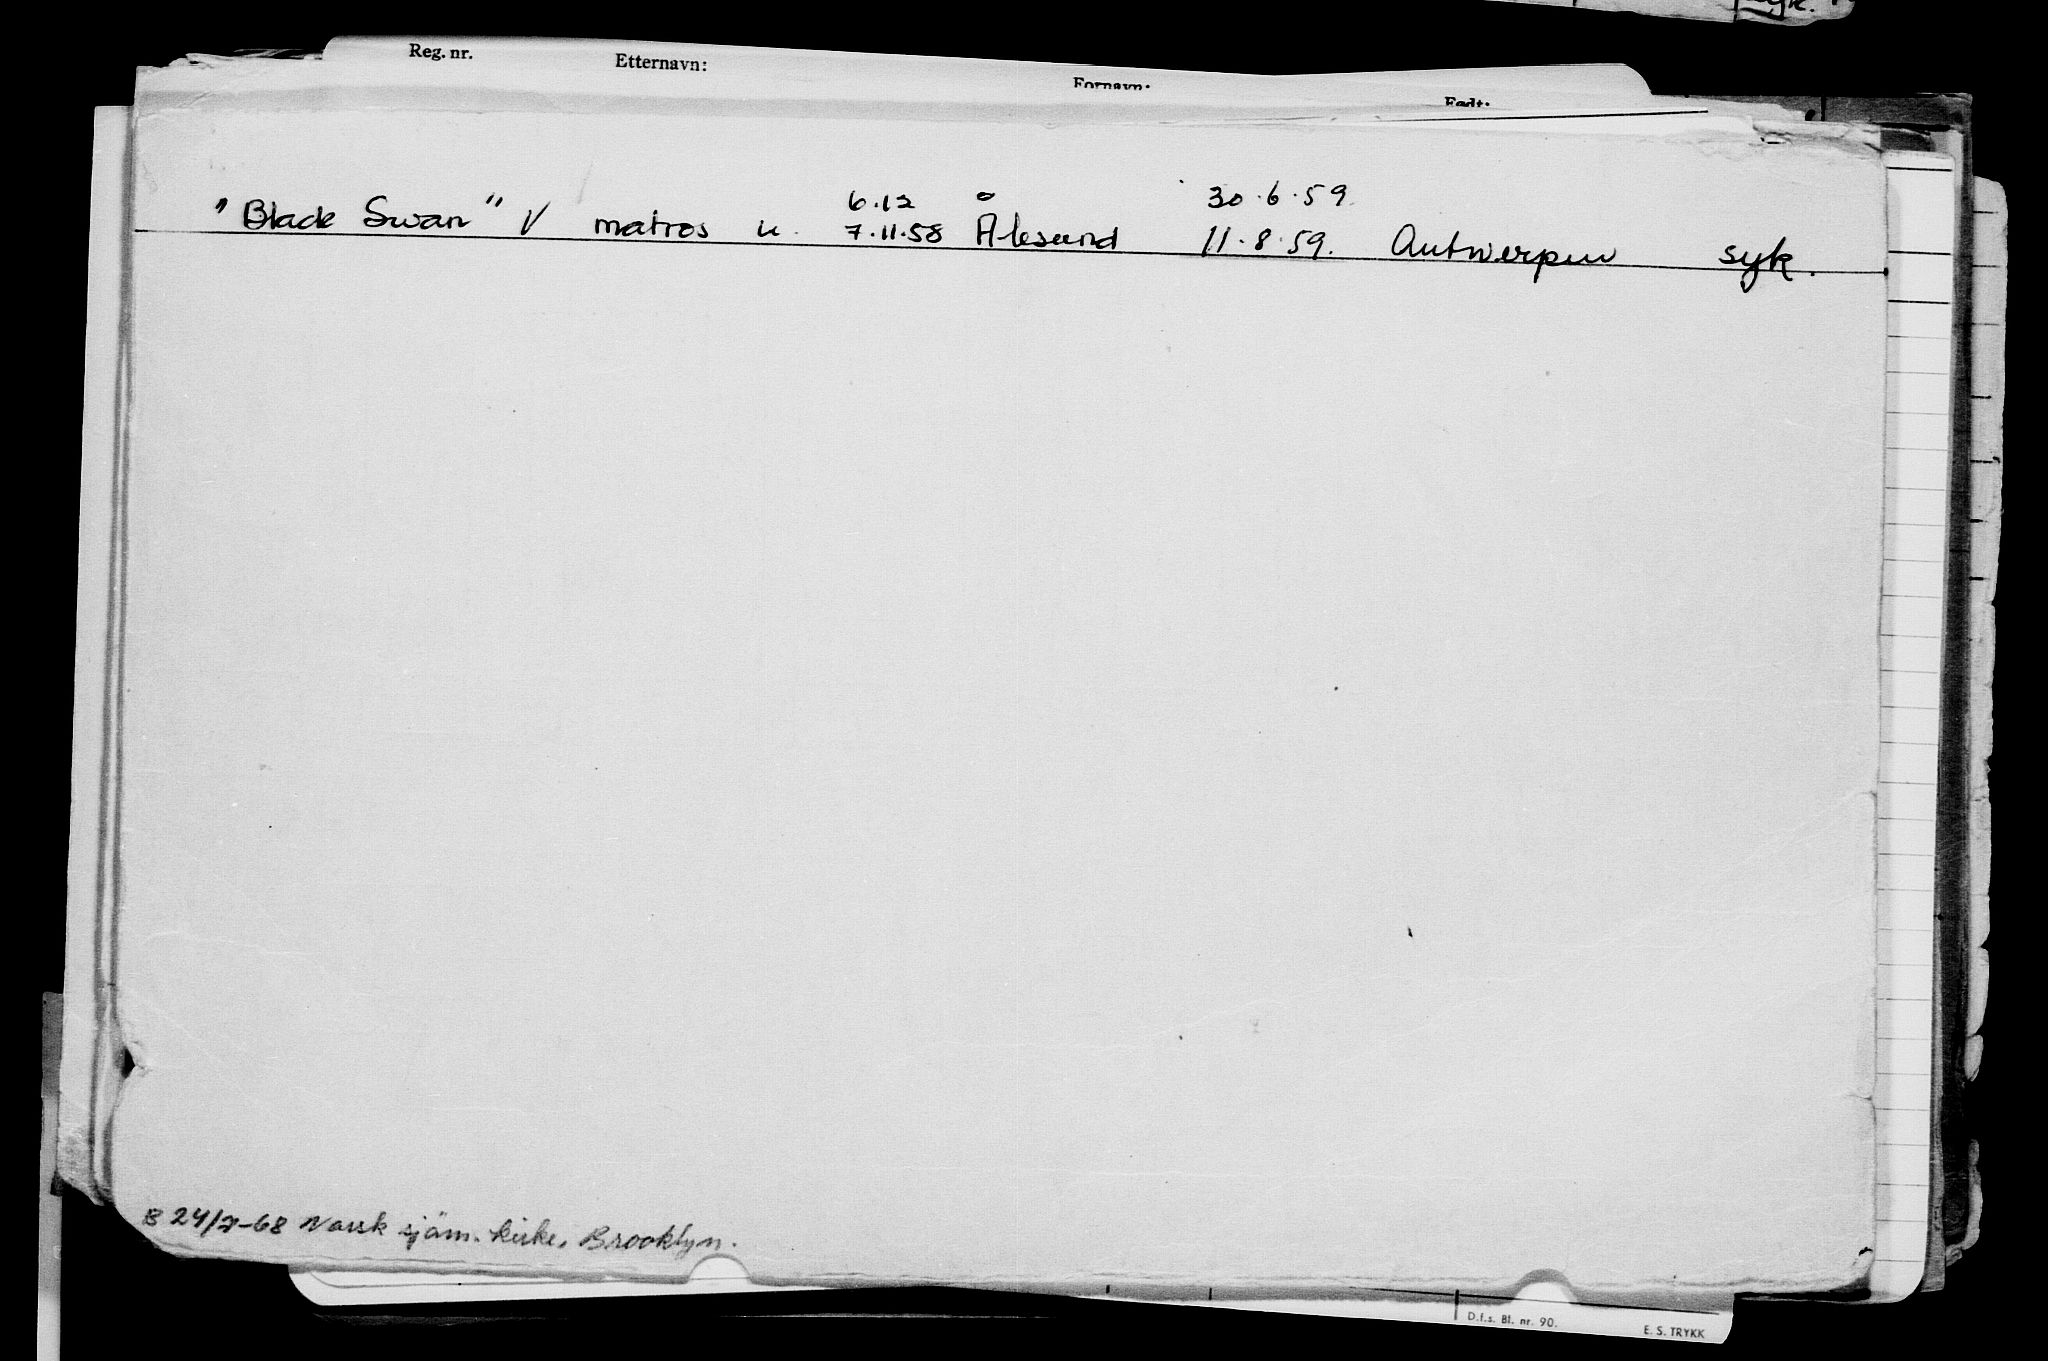 syk.
Reg. nr. Etternavn: Fornavn: Født:
6.12 30.6.59.
"Black Swan" V matros u. 7.11.58 Ålesund 11.8.59. Antwerpen syk.
B 24/7-68 Norsk sjøm. kirke, Brooklyn.
D.f.s. Bl. nr. 90. E. S. TRYKK